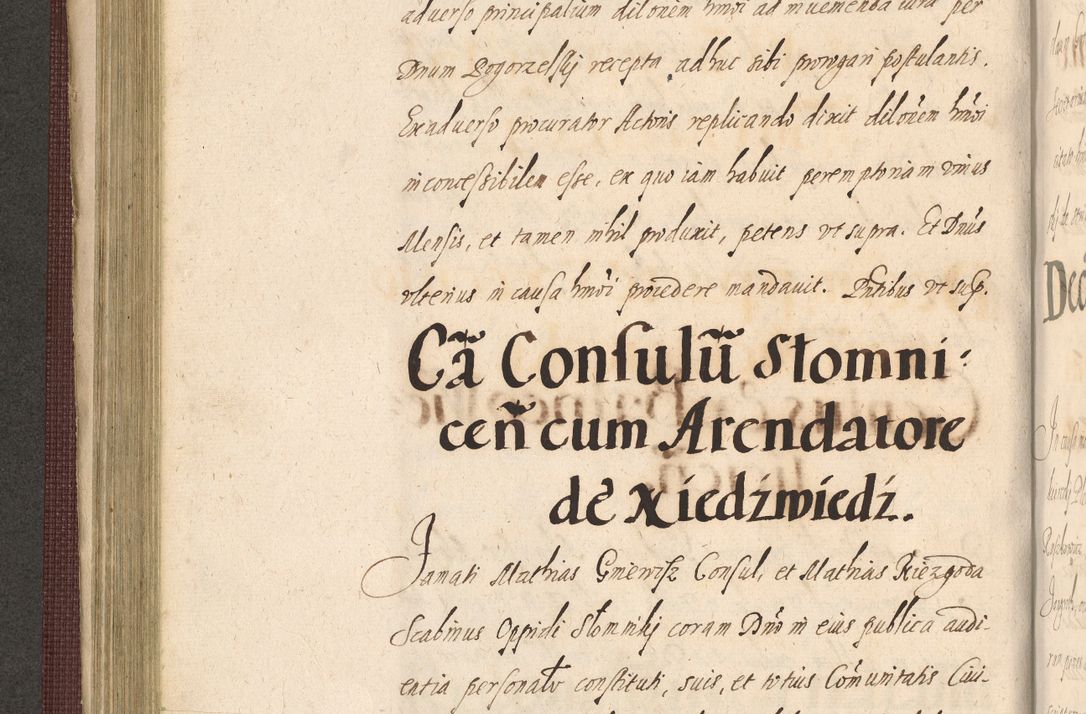 adverso principalium dilõnem hmõi ad invenienda iura per
Dnum Pogorzelskij recepta, adhuc sibi prorogari postulantis.
Ex adverso procurator Actoris replicando dixit dilõnem hmõi
inconcessibilem esse, ex quo iam habuit peremptoriam vnius
Mensis, et tamen nihil produxit, petens vt supra. Et Dnûs
vlterius in causa hmõi procedere mandavit. Pntibus vt sup.
Cã Consulũ Słomni-
ceñ cum Arendatore
de Niedźwiedź.
Famati Mathias Gmerwisz Consul, et Mathias Niezgoda
Scabinus Oppidi Słomnikij coram Dnõ in eius publica audi-
entia personałr constituti, suis, et totius Com̃unitatis Civi-
Deci